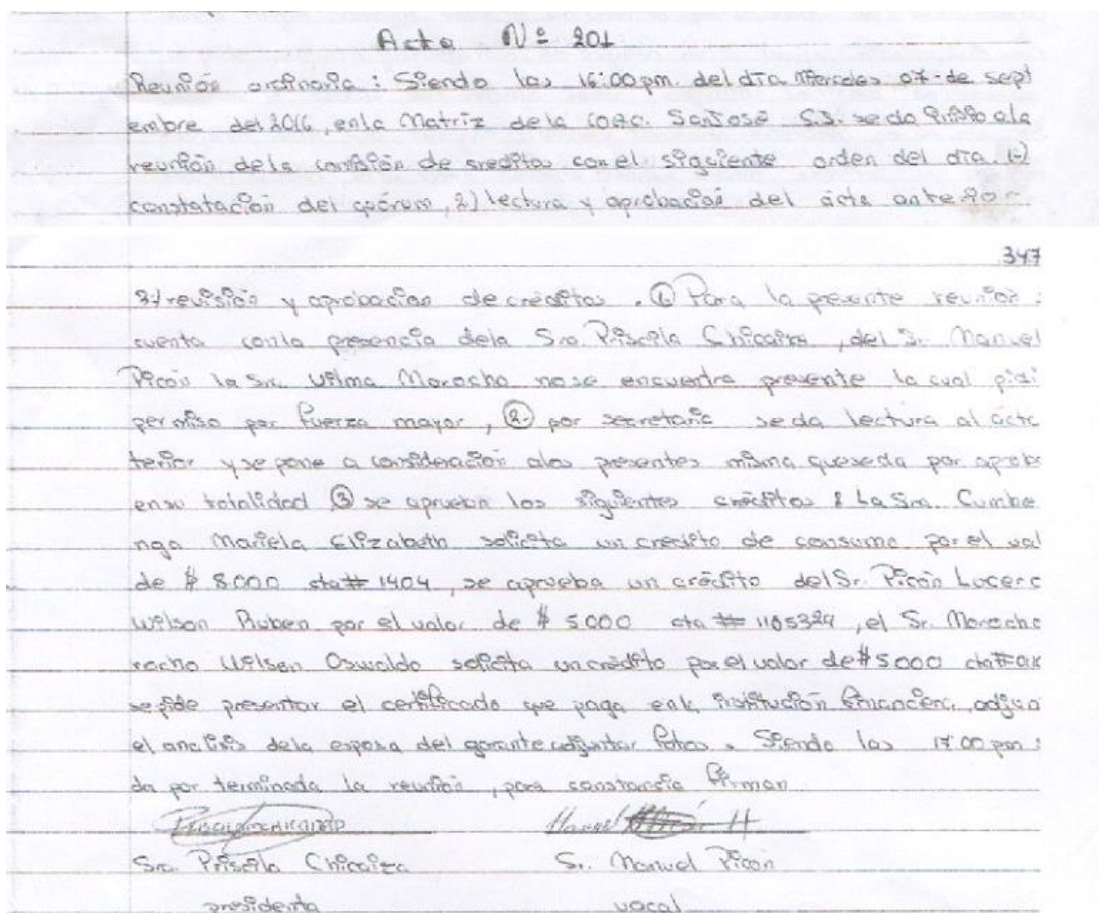 Acta Nº 201
Reunión ordinaria : Siendo las 16:00 pm. del día Miercoles 07-de sept
embre del 2016, en la Matriz de la COAC. San José S.J. se da inicio a la
reunión de la comisión de creditos con el siguiente orden del día 1.)
constatación del quórum, 2.) lectura y aprobación del ácta anterior
347
3.) revisión y aprobación de créditos . ① Para la presente reunión
cuenta con la presencia de la Sra. Priscila Chicaiza , del Sr. Manuel
Picón la Sra. Vilma Morocho no se encuentra presente la cual pidi
permiso por fuerza mayor , ② por secretaria se da lectura al ácta
terior y se pone a consideración a los presentes misma que se da por aprob
en su totalidad ③ se aprueban los siguientes créditos : La Sra. Cumbe
nga Mariela Elizabeth solicita un credito de consumo por el val
de $ 8.000 cta# 1404 , se aprueba un crédito del Sr. Picón Lucero
Wilson Ruben por el valor de $ 5.000 cta # 1105329 , el Sr. Morocho
rocho Wilson Oswaldo solicita un crédito por el valor de $5.000 cta#
se pide presentar el certificado que paga en la institución financiera, adjun
el analisis de la esposa del garante adjuntar fotos . Siendo las 17:00 pm
da por terminada la reunión , para constancia firman
Sra. Priscila Chicaiza Sr. Manuel Picón
presidenta vocal